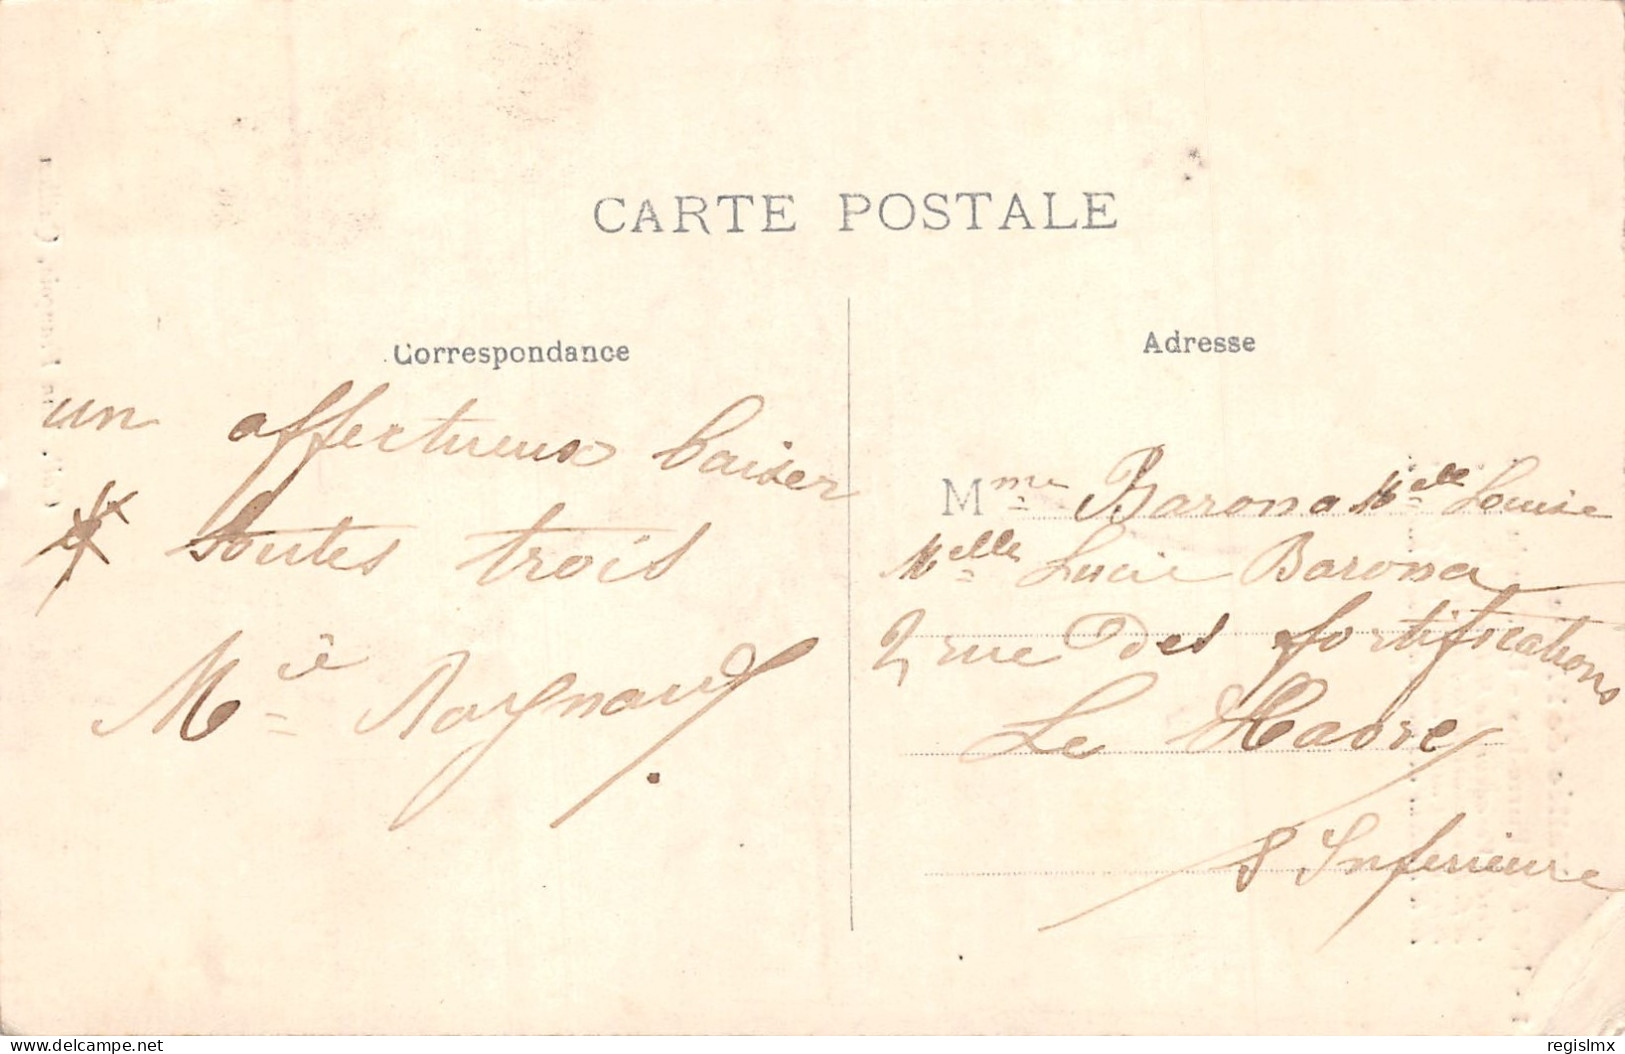 CARTE POSTALE
Correspondance
un affectueux baiser
à toutes trois
M. Raynaud
Adresse
Mme Barona Melle Louise
Melle Lucie Barona
2, rue des fortifications
Le Havre
S Inferieure
delcampe.net
regislmx